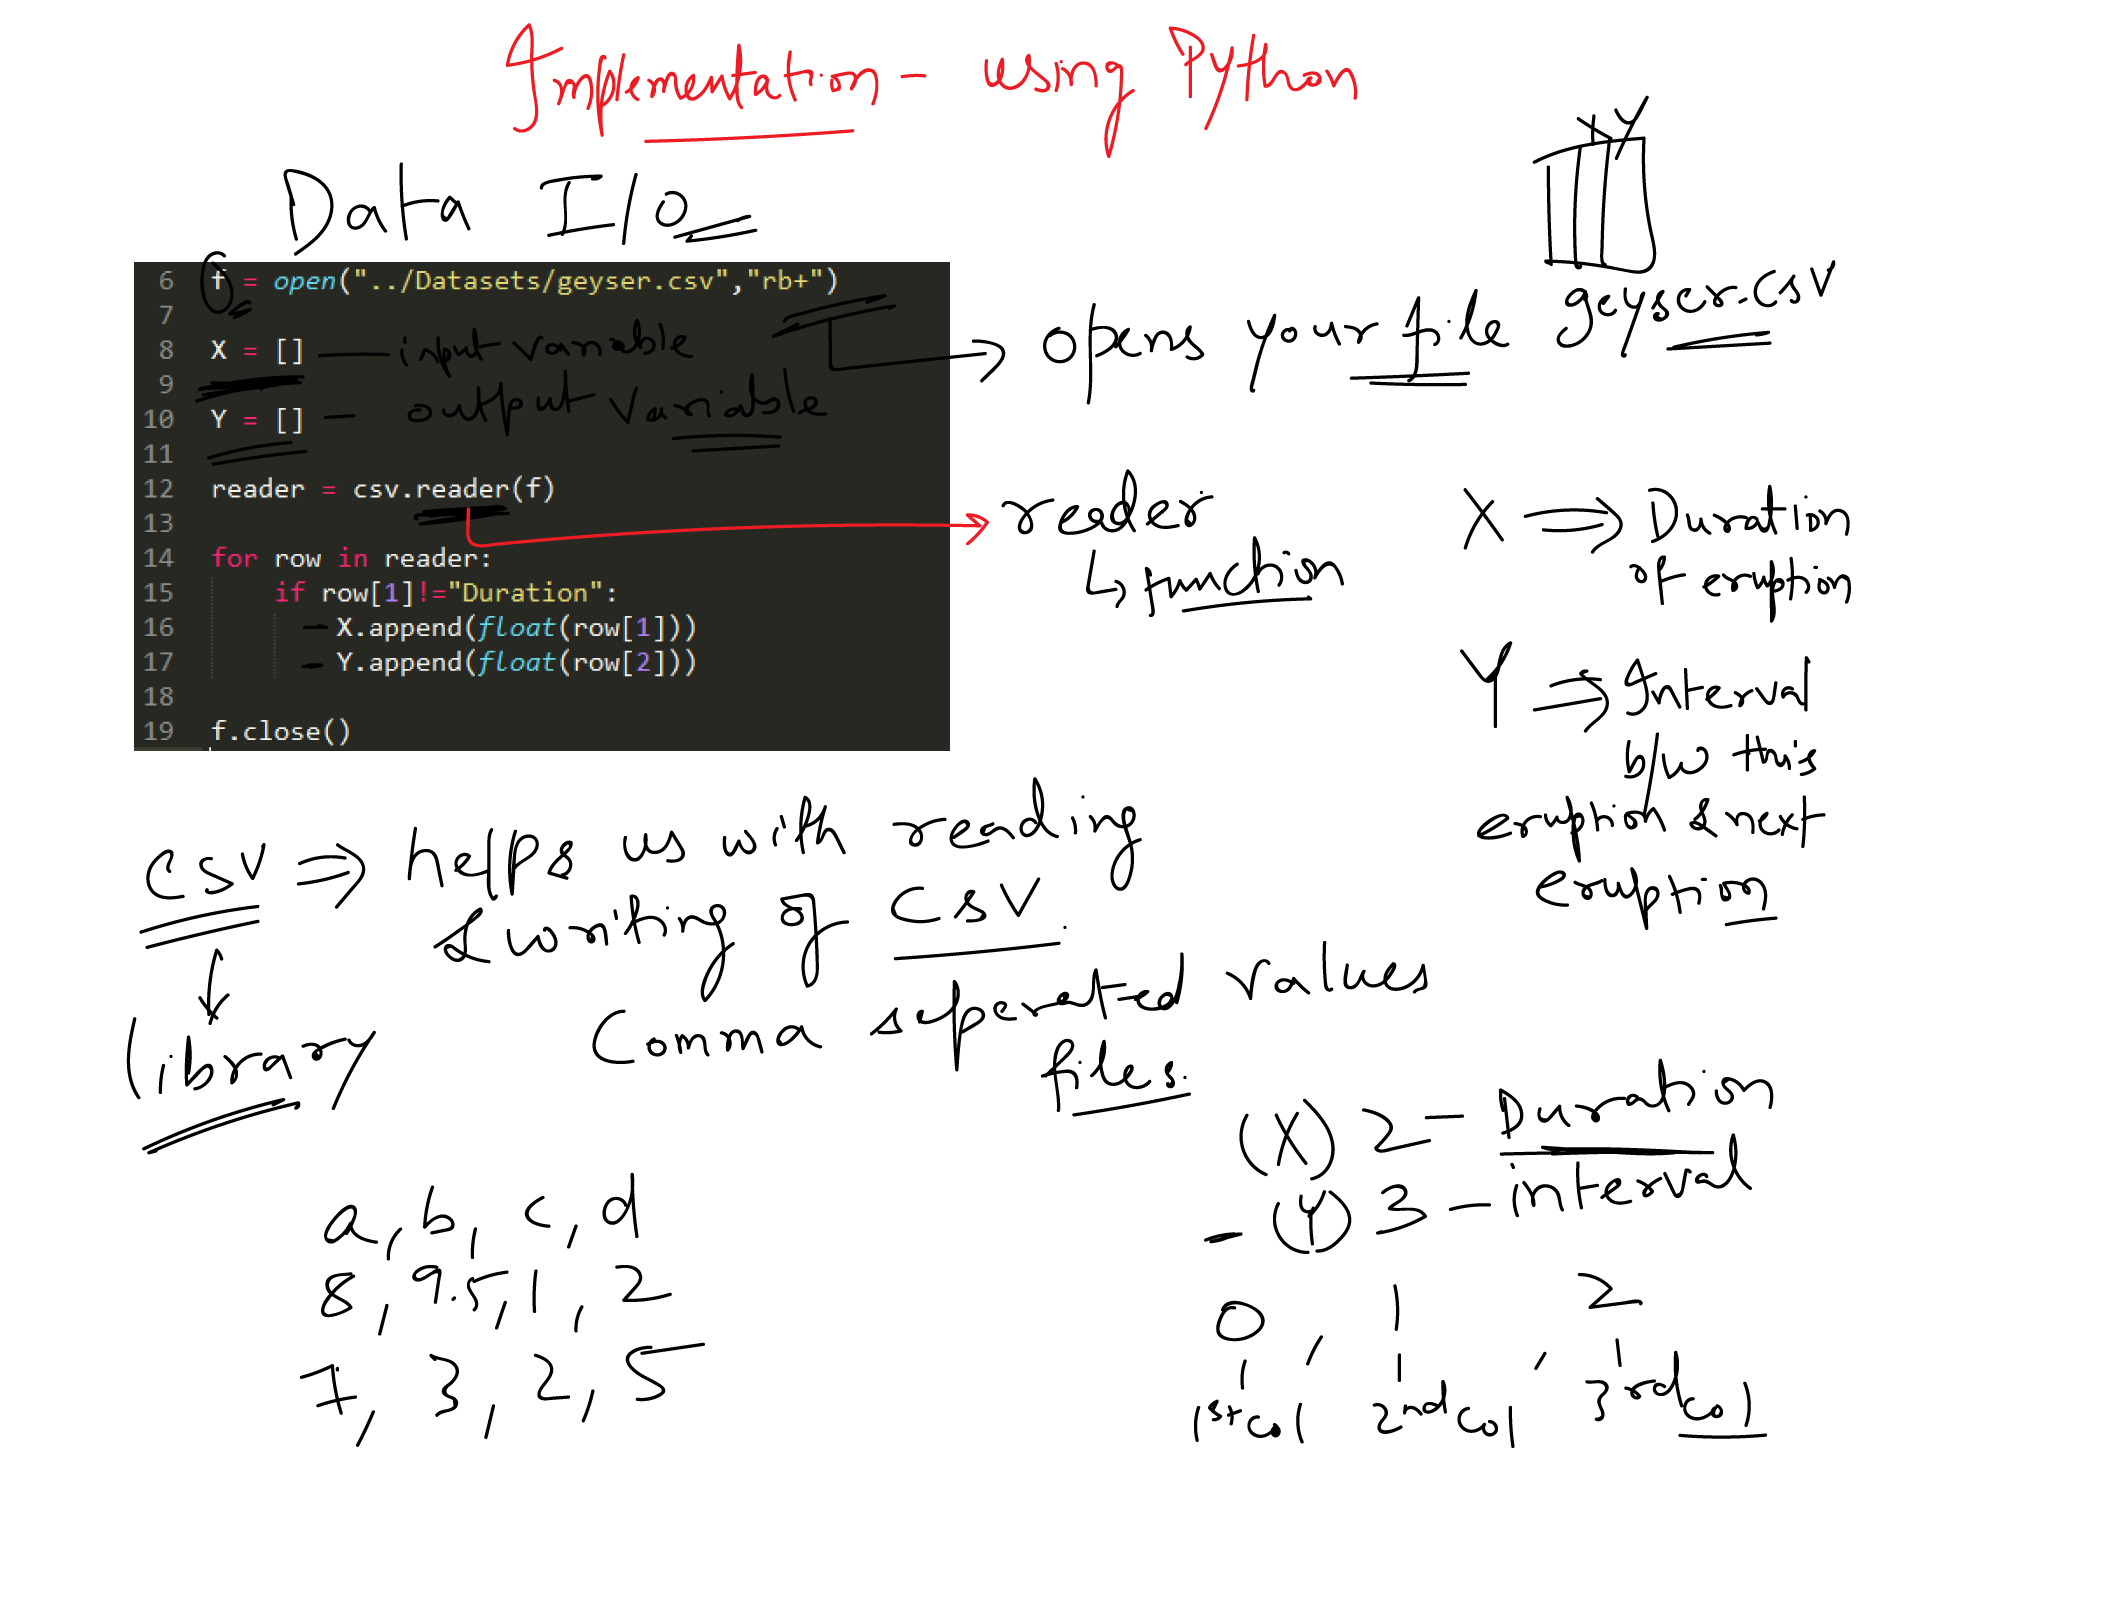 Implementation - using Python
Data I/O
X Y
6 f = open("../Datasets/geyser.csv","rb+")
7
8 X = [] — input variable
9
10 Y = [] — output variable
11
12 reader = csv.reader(f)
13
14 for row in reader:
15 if row[1]!="Duration":
16 X.append(float(row[1]))
17 Y.append(float(row[2]))
18
19 f.close()
opens your file geyser.csv
reader
↳ function
X ⇒ Duration
of eruption
Y ⇒ Interval
b/w this
eruption & next
eruption
CSV ⇒ helps us with reading
& writing of CSV.
Comma seperated values
files.
library
a, b, c, d
8, 9.5, 1, 2
7, 3, 2, 5
(X) 2 - Duration
- (Y) 3 - interval
0, 1, 2
1st col 2nd col 3rd col